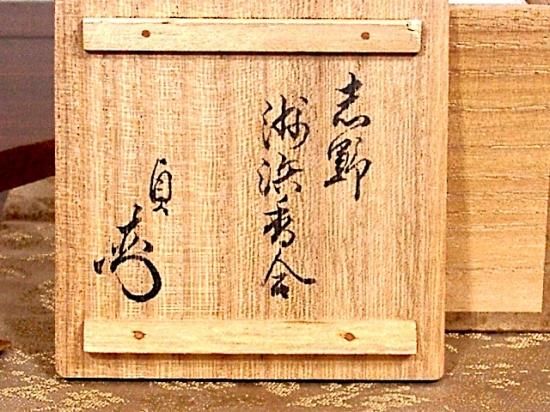 志野
洲浜香合
貞